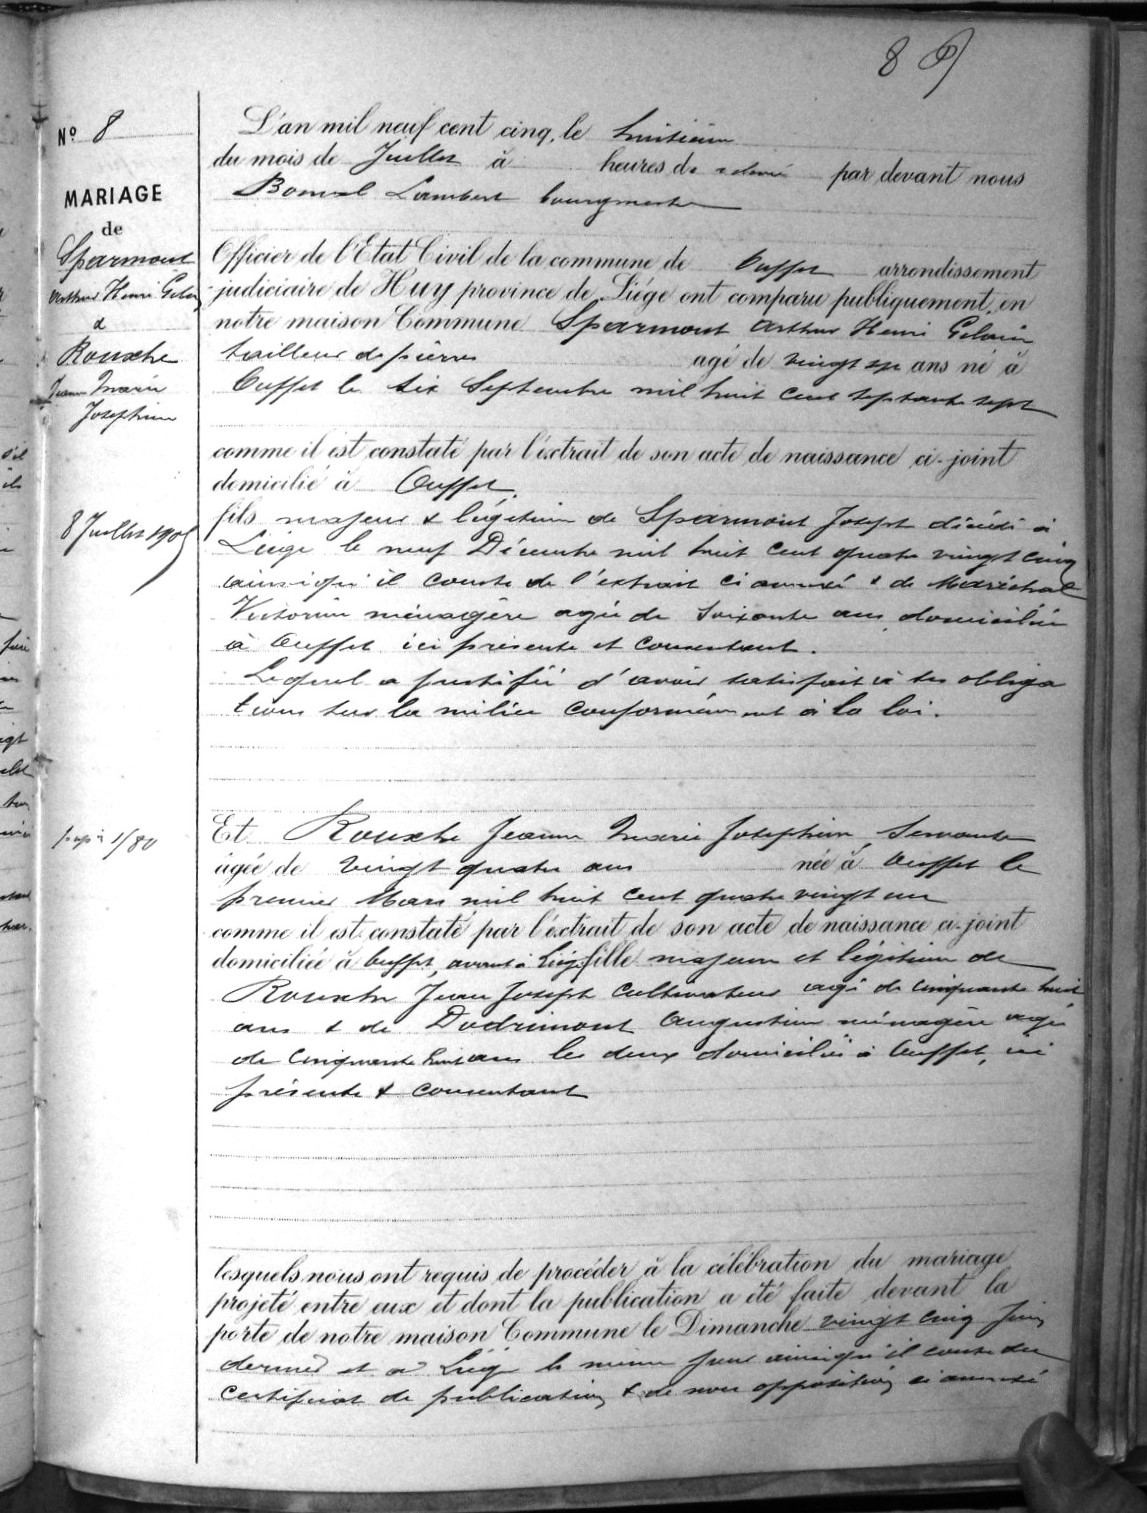 8
Nº 8
MARIAGE
de
Sparmont
Arthur Henri Gelain
&
Rouxhe
Jeanne Marie
Joséphine
8 Juillet 1905
1/80
L'an mil neuf cent cinq, le huitième
du mois de Juillet à heures de relevée par devant nous
Bonmal Lambert bourgmestre
Officier de l'Etat Civil de la commune de Ouffet arrondissement
judiciaire de Huy province de Liége ont comparu publiquement, en
notre maison Commune Sparmont Arthur Henri Gelain
tailleur de pierres agé de vingt sept ans né à
Ouffet le six Septembre mil huit cent septante sept
comme il est constaté par l'extrait de son acte de naissance ci-joint
domicilié à Ouffet.
fils majeur & légitime de Sparmont Joseph décédé à
Liége le neuf Décembre mil huit cent quatre vingt cinq
ainsi qu'il conste de l'extrait ci annexé & de Maréchal
Victorine ménagère agée de soixante ans domiciliée
à Ouffet ici présente et consentant.
Lequel a justifié d'avoir satisfait à ses obliga
tions sur la milice conformément à la loi.
Et Rouxhe Jeanne Marie Joséphine, Servante
âgée de vingt quatre ans née à Ouffet le
premier Mars mil huit cent quatre vingt un
comme il est constaté par l'extrait de son acte de naissance ci-joint
domiciliée à Ouffet, avant à Liége fille majeure et légitime de
Rouxhe Jean Joseph Cultivateur agé de cinquante huit
ans & de Dodrimont Augustine ménagère agée
de cinquante huit ans les deux domiciliés à Ouffet, ici
présents & consentant
lesquels nous ont requis de procéder à la célébration du mariage
projeté entre eux et dont la publication a été faite devant la
porte de notre maison Commune le Dimanche vingt cinq Juin
dernier et à Liége le même jour ainsi qu'il conste du
certificat de publication & de non opposition ci annexé